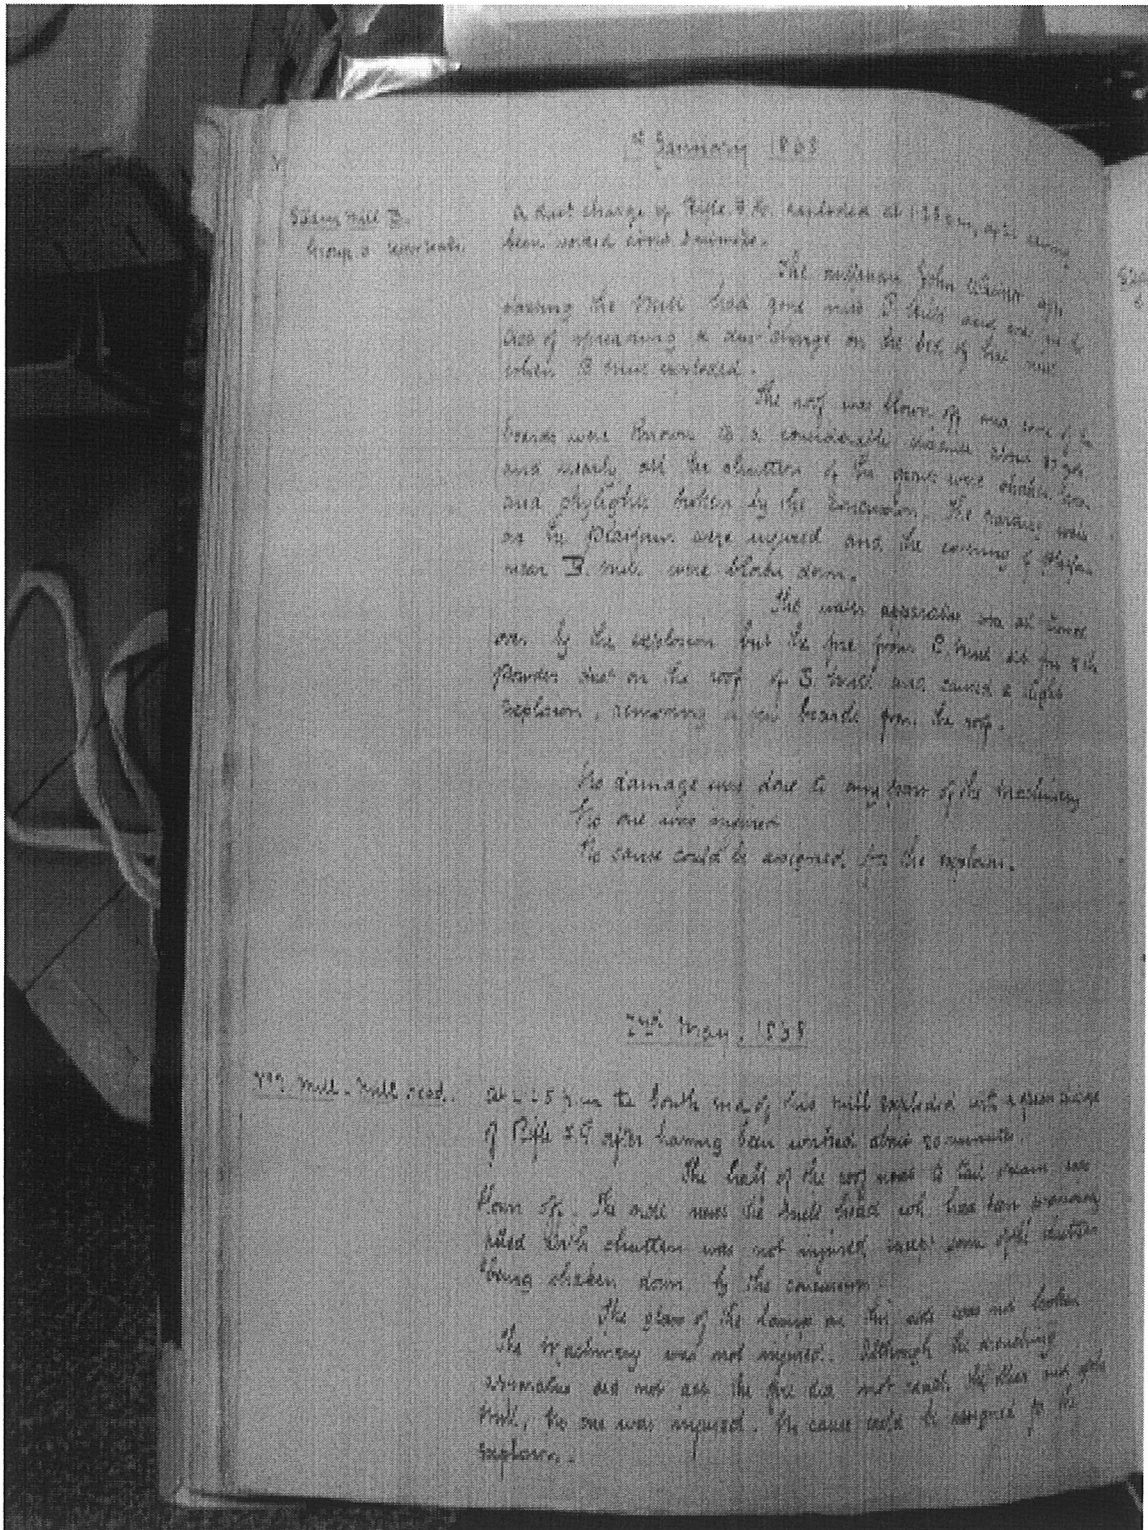 1st January 1868
Steam Mill B.
Group
A dust charge of Rifle exploded at after having
been worked about 5 minutes.
The millman John after
charging the Mill had gone into Mill and was in the
act of spreading a dust charge on the bed of that mill
when B Mill exploded.
The roof was blown off and some of the
boards were thrown to a considerable distance about 87 yds
and nearly all the shutters of the group were shaken down
and skylights broken by the concussion. The
on the Platform were injured and the covering of Platform
near B. Mill were blown down.
The water apparatus was all turned
over by the explosion but the fire from Mill did fire the
powder dust on the roof of Mill and caused a slight
explosion, removing a few boards from the roof.
No damage was done to any part of the Machinery
No one was injured
No cause could be assigned for the explosion.
2nd May. 1868
Mill. Mill Head.
At the South end of this mill exploded with a green charge
of Rifle L.G after having been worked about 20 minutes.
The half of the roof next to tail was
blown off. The side next the Mill head wh. had been
filled with shutters was not injured, except some of the shutters
being shaken down by the concussion
The glass of the on this side was not broken
The Machinery was not injured. Although the drenching
apparatus did not act the fire did not catch the other end of the
Mill, No one was injured. No cause could be assigned for the
explosion.